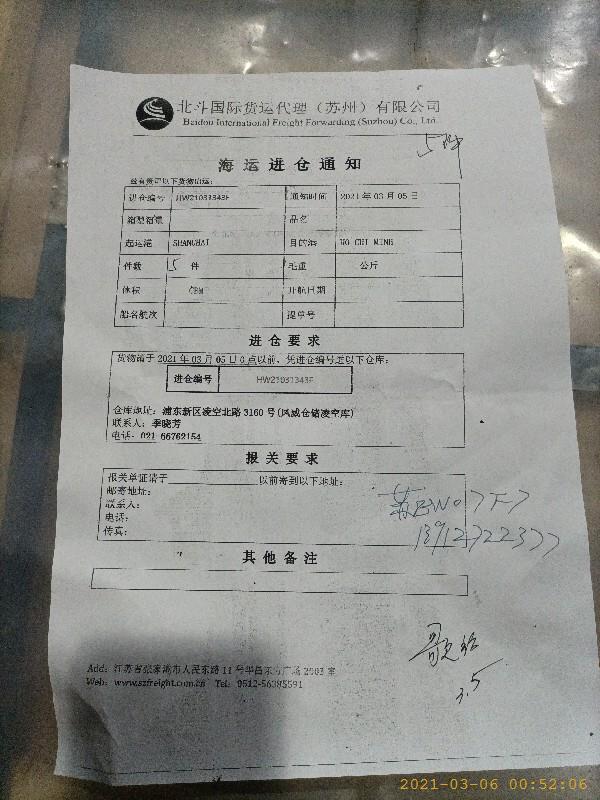 北斗国际货运代理（苏州）有限公司
Beidou International Freight Forwarding (Suzhou) Co., Ltd.
5件
海运进仓通知
兹有贵司以下货物出运：
进仓编号 HW21031343F 通知时间 2021 年 03 月 05 日
箱型箱量 品名
起运港 SHANGHAI 目的港 HO CHI MINH
件数 5 件 毛重 公斤
体积 CBM 开航日期
船名航次 提单号
进仓要求
货物请于 2021 年 03 月 05 日 0 点以前，凭进仓编号送以下仓库：
进仓编号 HW21031343F
仓库地址：浦东新区凌空北路 3160 号(风威仓储凌空库)
联系人：李晓芳
电话：021 66762154
报关要求
报关单证请于 以前寄到以下地址：
邮寄地址：
联系人：
电话：
传真：
苏E
其他备注
3.5
Add：江苏省张家港市人民东路 11 号华昌东方广场 2003 室
Web：www.szfreight.com.cn Tel：0512-56385591
2021-03-06 00:52:06